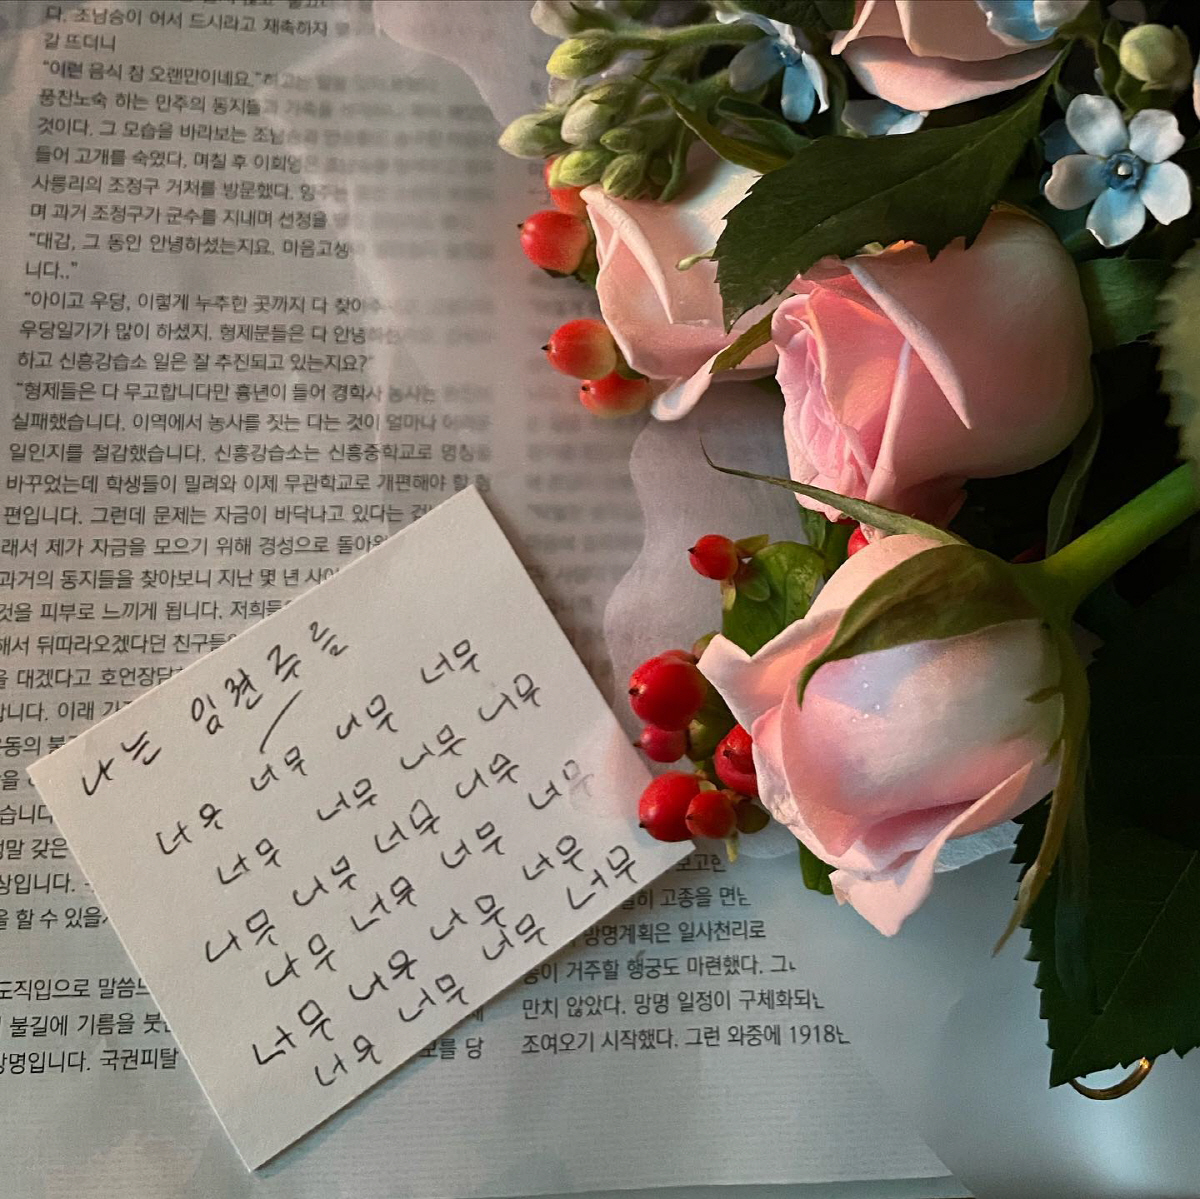 다. 조남승이 어서 드시라고 재촉하자
갈 뜨더니
“이런 음식 참 오랜만이네요.”하고는
풍찬노숙 하는 민주의 동지들과 가족을
것이다. 그 모습을 바라보는 조남승과
들어 고개를 숙였다. 며칠 후 이회영은
사릉리의 조정구 거처를 방문했다. 양주는
며 과거 조정구가 군수를 지내며 선정을
“대감, 그 동안 안녕하셨는지요. 마음고생
니다..”
“아이고 우당, 이렇게 누추한 곳까지 다 찾아주
우당일가가 많이 하셨지. 형제분들은 다 안녕하
하고 신흥강습소 일은 잘 추진되고 있는지요?”
“형제들은 다 무고합니다만 흉년이 들어 경학사 농사는
실패했습니다. 이역에서 농사를 짓는 다는 것이 얼마나 어려운
일인지를 절감했습니다. 신흥강습소는 신흥중학교로 명칭을
바꾸었는데 학생들이 밀려와 이제 무관학교로 개편해야 할 형
편입니다. 그런데 문제는 자금이 바닥나고 있다는 겁
래서 제가 자금을 모으기 위해 경성으로 돌아와
과거의 동지들을 찾아보니 지난 몇 년 사이
것을 피부로 느끼게 됩니다. 저희들
해서 뒤따라오겠다던 친구들
을 대겠다고 호언장담
합니다. 이래 가
운동의 불
습니다
정말 갖은
상입니다.
을 할 수 있을
도직입으로 말씀드
불길에 기름을 붓는
망명입니다. 국권피탈
나는 임현주를
너무 너무 너무 너무
너무 너무 너무 너무
너무 너무 너무 너무
너무 너무 너무 너무
너무 너무 너무 너무
너무 너무 너무 너무
보고한
히 고종을 면
망명계획은 일사천리로
종이 거주할 행궁도 마련했다. 그
만치 않았다. 망명 일정이 구체화되
조여오기 시작했다. 그런 와중에 1918
모를 당